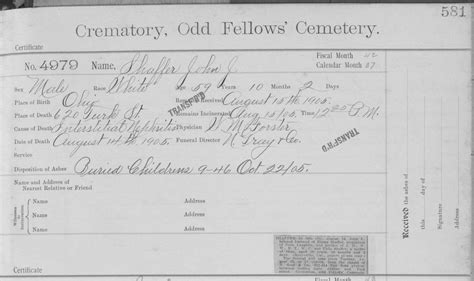 581
Crematory, Odd Fellows' Cemetery.
Certificate
Fiscal Month 42
No. 4979 Name, Shaffer John J. Calendar Month 37
Sex Male Race White Age 59 Years 10 Months 2 Days
Place of Birth Ohio Remains Received August 15th 1905.
Place of Death 620 Turk St. Remains Incinerated Aug 15/05, Time 12 25 P.M.
Cause of Death Interstitial Nephritis Physician W. M. Forster
Date of Death August 14th 1905. Funeral Director N. Gray & Co.
TRANSF'D
TRANSF'D
Disposition of Ashes Buried Childrens 9-46 Oct 22/05.
Name and Address of
Nearest Relative or Friend
Witnesses to Incineration
Received the ashes of
this day of
Signature
Certificate
Fiscal Month